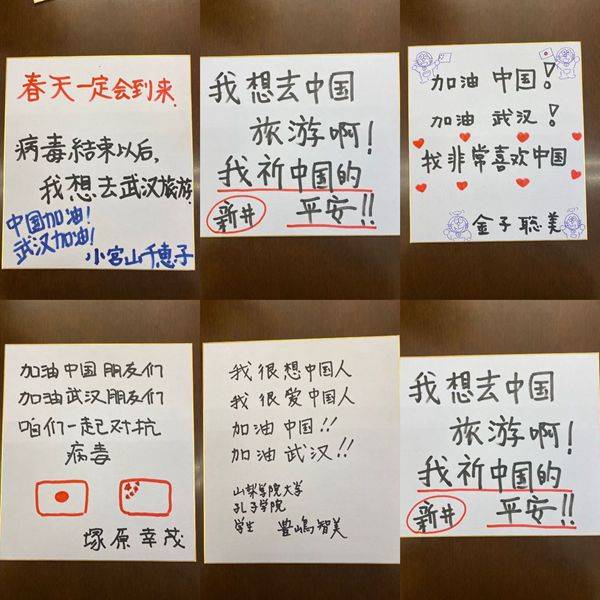 春天一定会到来
病毒結束以后,
我想去武汉旅游
中国加油!
武汉加油!
小宮山千恵子
我想去中国
旅游啊!
我祈中国的
新井 平安!!
加油 中国!
加油 武汉!
我非常喜欢中国
金子聡美
加油中国朋友们
加油武汉朋友们
咱们一起对抗
病毒
塚原幸茂
我很想中国人
我很爱中国人
加油 中国!!
加油 武汉!!
山梨学院大学
孔子学院
学生 豊嶋智美
我想去中国
旅游啊!
我祈中国的
新井 平安!!